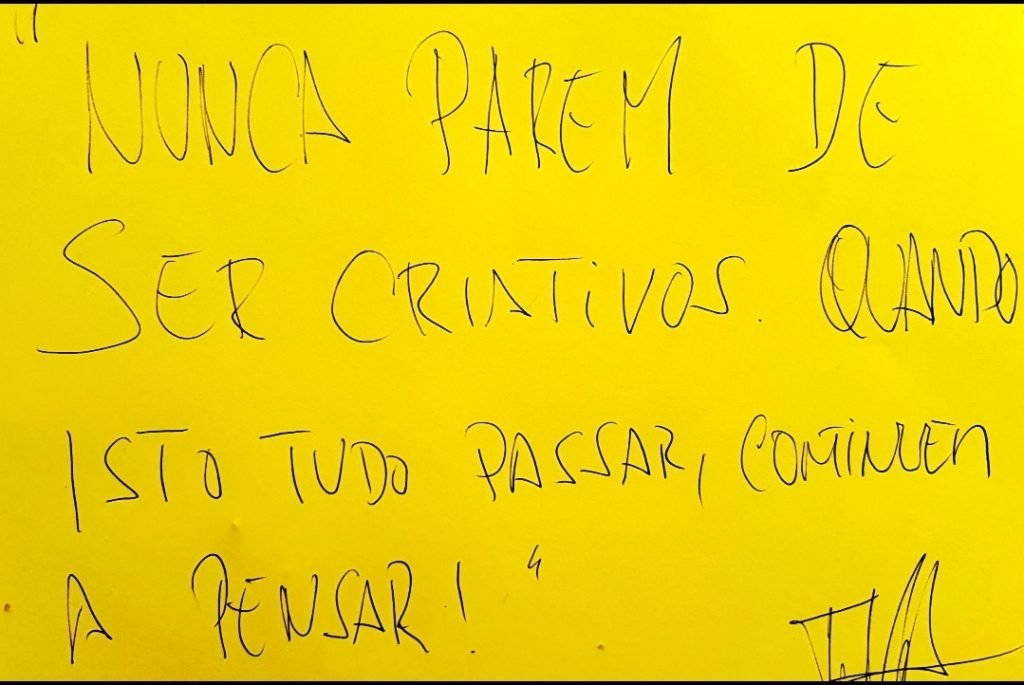 "NUNCA PAREM DE
SER CRIATIVOS. QUANDO
ISTO TUDO PASSAR, CONTINUEM
A PENSAR!"